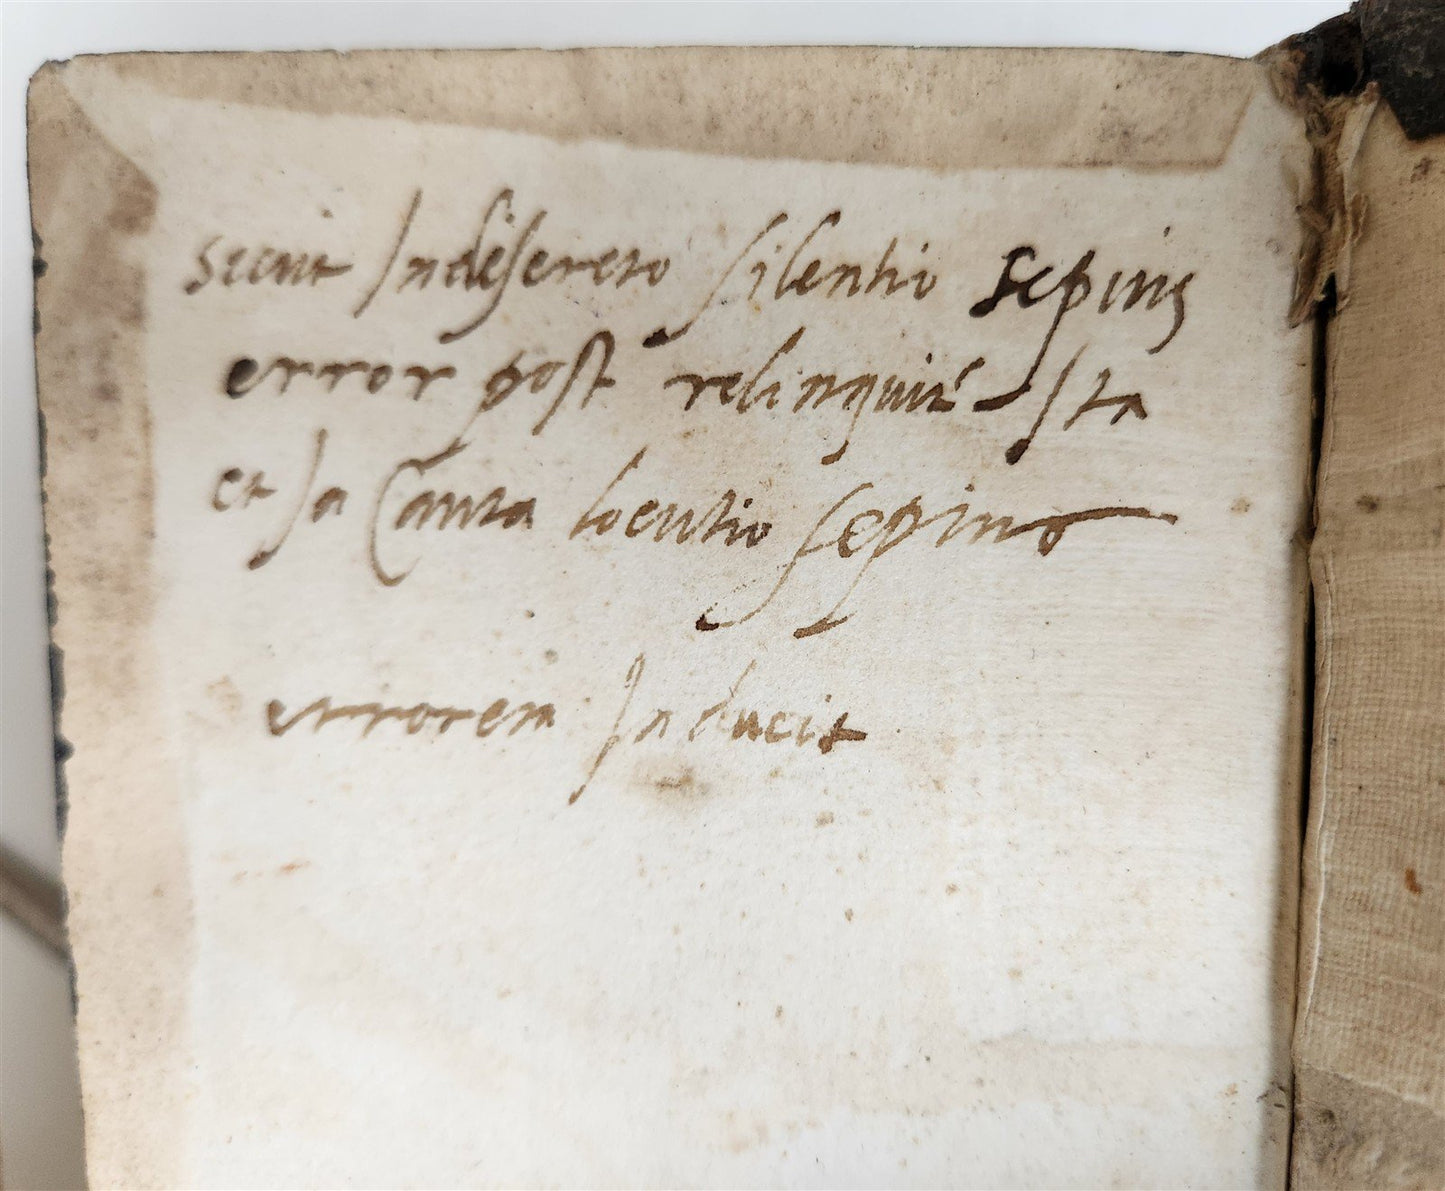 sicut Indiscreto silentio sepius
error post relinquit Ita
et In Cauta locutio sepius
errorem Inducit